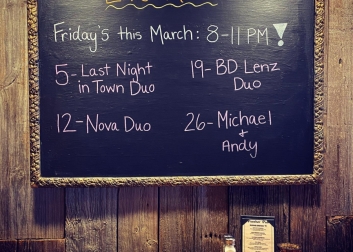 Friday's this March: 8-11 PM!
5- Last Night
in Town Duo
12- Nova Duo
19- BD Lenz
Duo
26- Michael
+
Andy